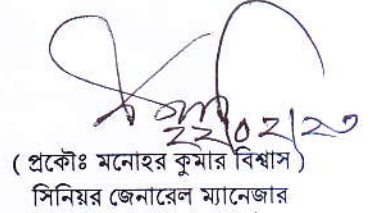 ২২/০২/২৩
( প্রকৌঃ মনোহর কুমার বিশ্বাস )
সিনিয়র জেনারেল ম্যানেজার